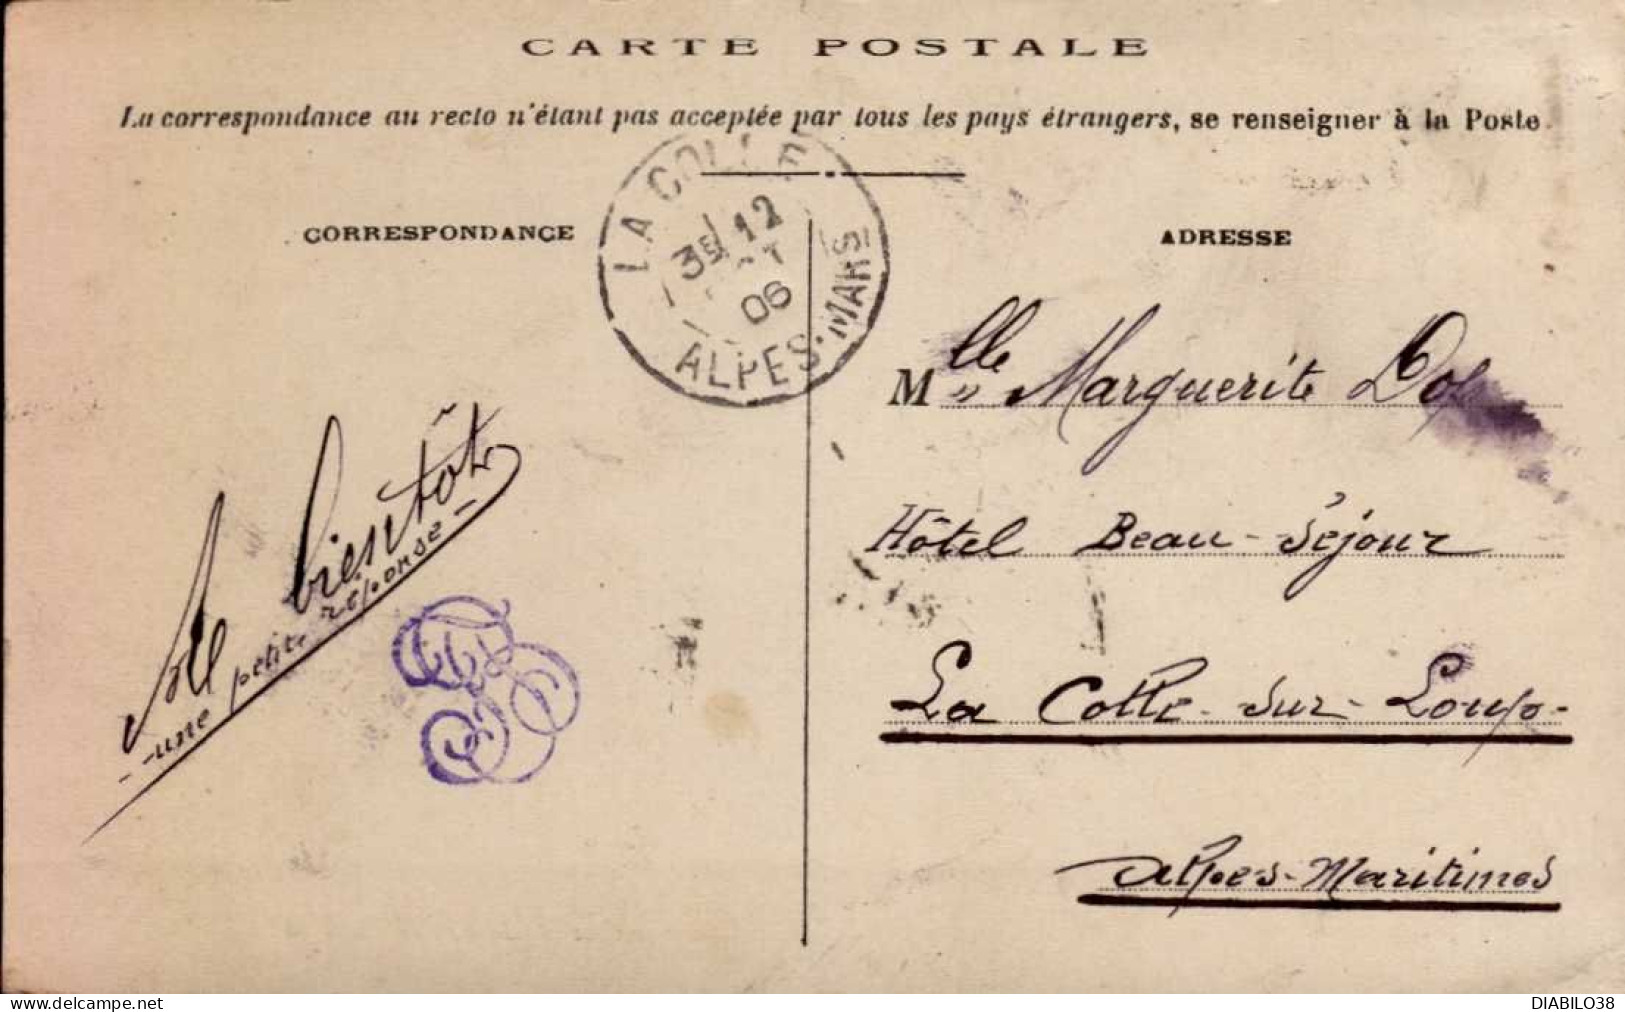 CARTE POSTALE
La correspondance au recto n'étant pas acceptée par tous les pays étrangers, se renseigner à la Poste
CORRESPONDANCE
ADRESSE
LA COLLE
12
06
ALPES-MARS
A bientôt
une petite réponse
Mlle Marguerite
Hôtel Beau-Séjour
La Colle-sur-Loup-
Alpes-Maritimes
DIABILO38